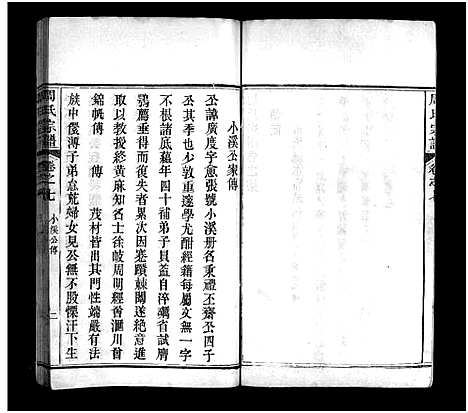 周氏宗譜
卷之七
小溪公家傳
公諱廣度字愈張號小溪册名重禮丕齋公四子
公其季也少敦重邃學尤酣經籍每屬文無一字
不根諸底蘊年四十補弟子員自淬礪省試膺
鶚薦而復失者累次因蹇躓棘闈遂絕意進
取以教授終黃麻知名士徐岐周明經晉滙川曾
錦帆傳 傳 茂材皆出其門性端嚴有法
族中儇薄子弟意蕪婦女見公無不股慄汗下生
周氏宗譜
卷之七
小溪公傳
二